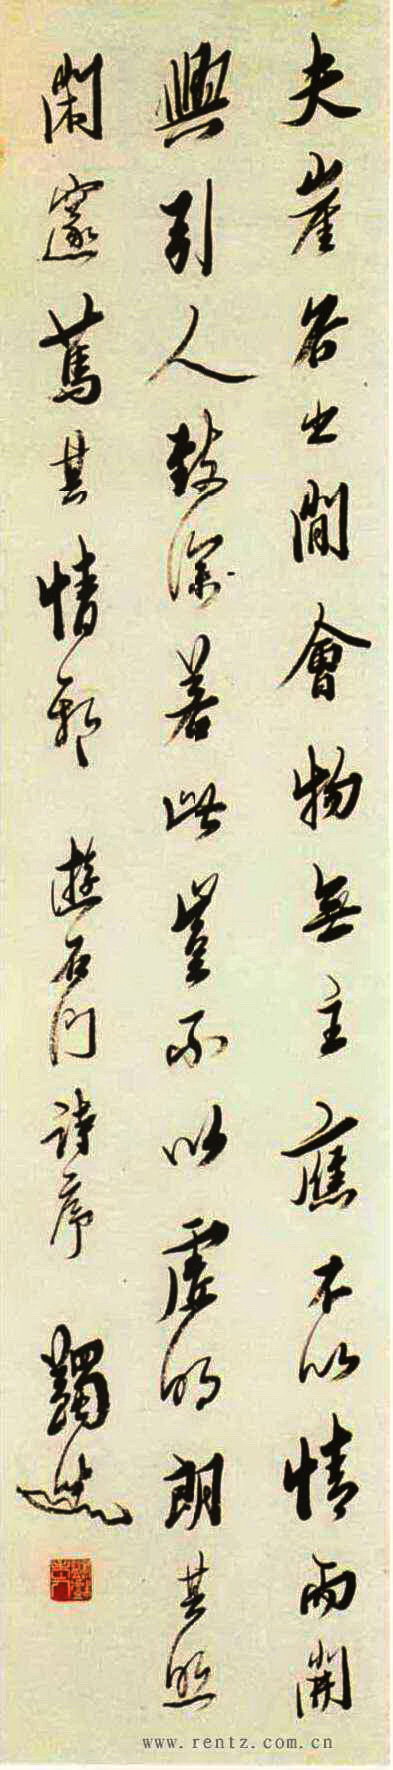 夫崖谷之間會物無主應不以情而開
興引人致深若此豈不以虛明朗其照
閑邃篤其情耶 遊石門詩序 蠲叟
www.rentz.com.cn